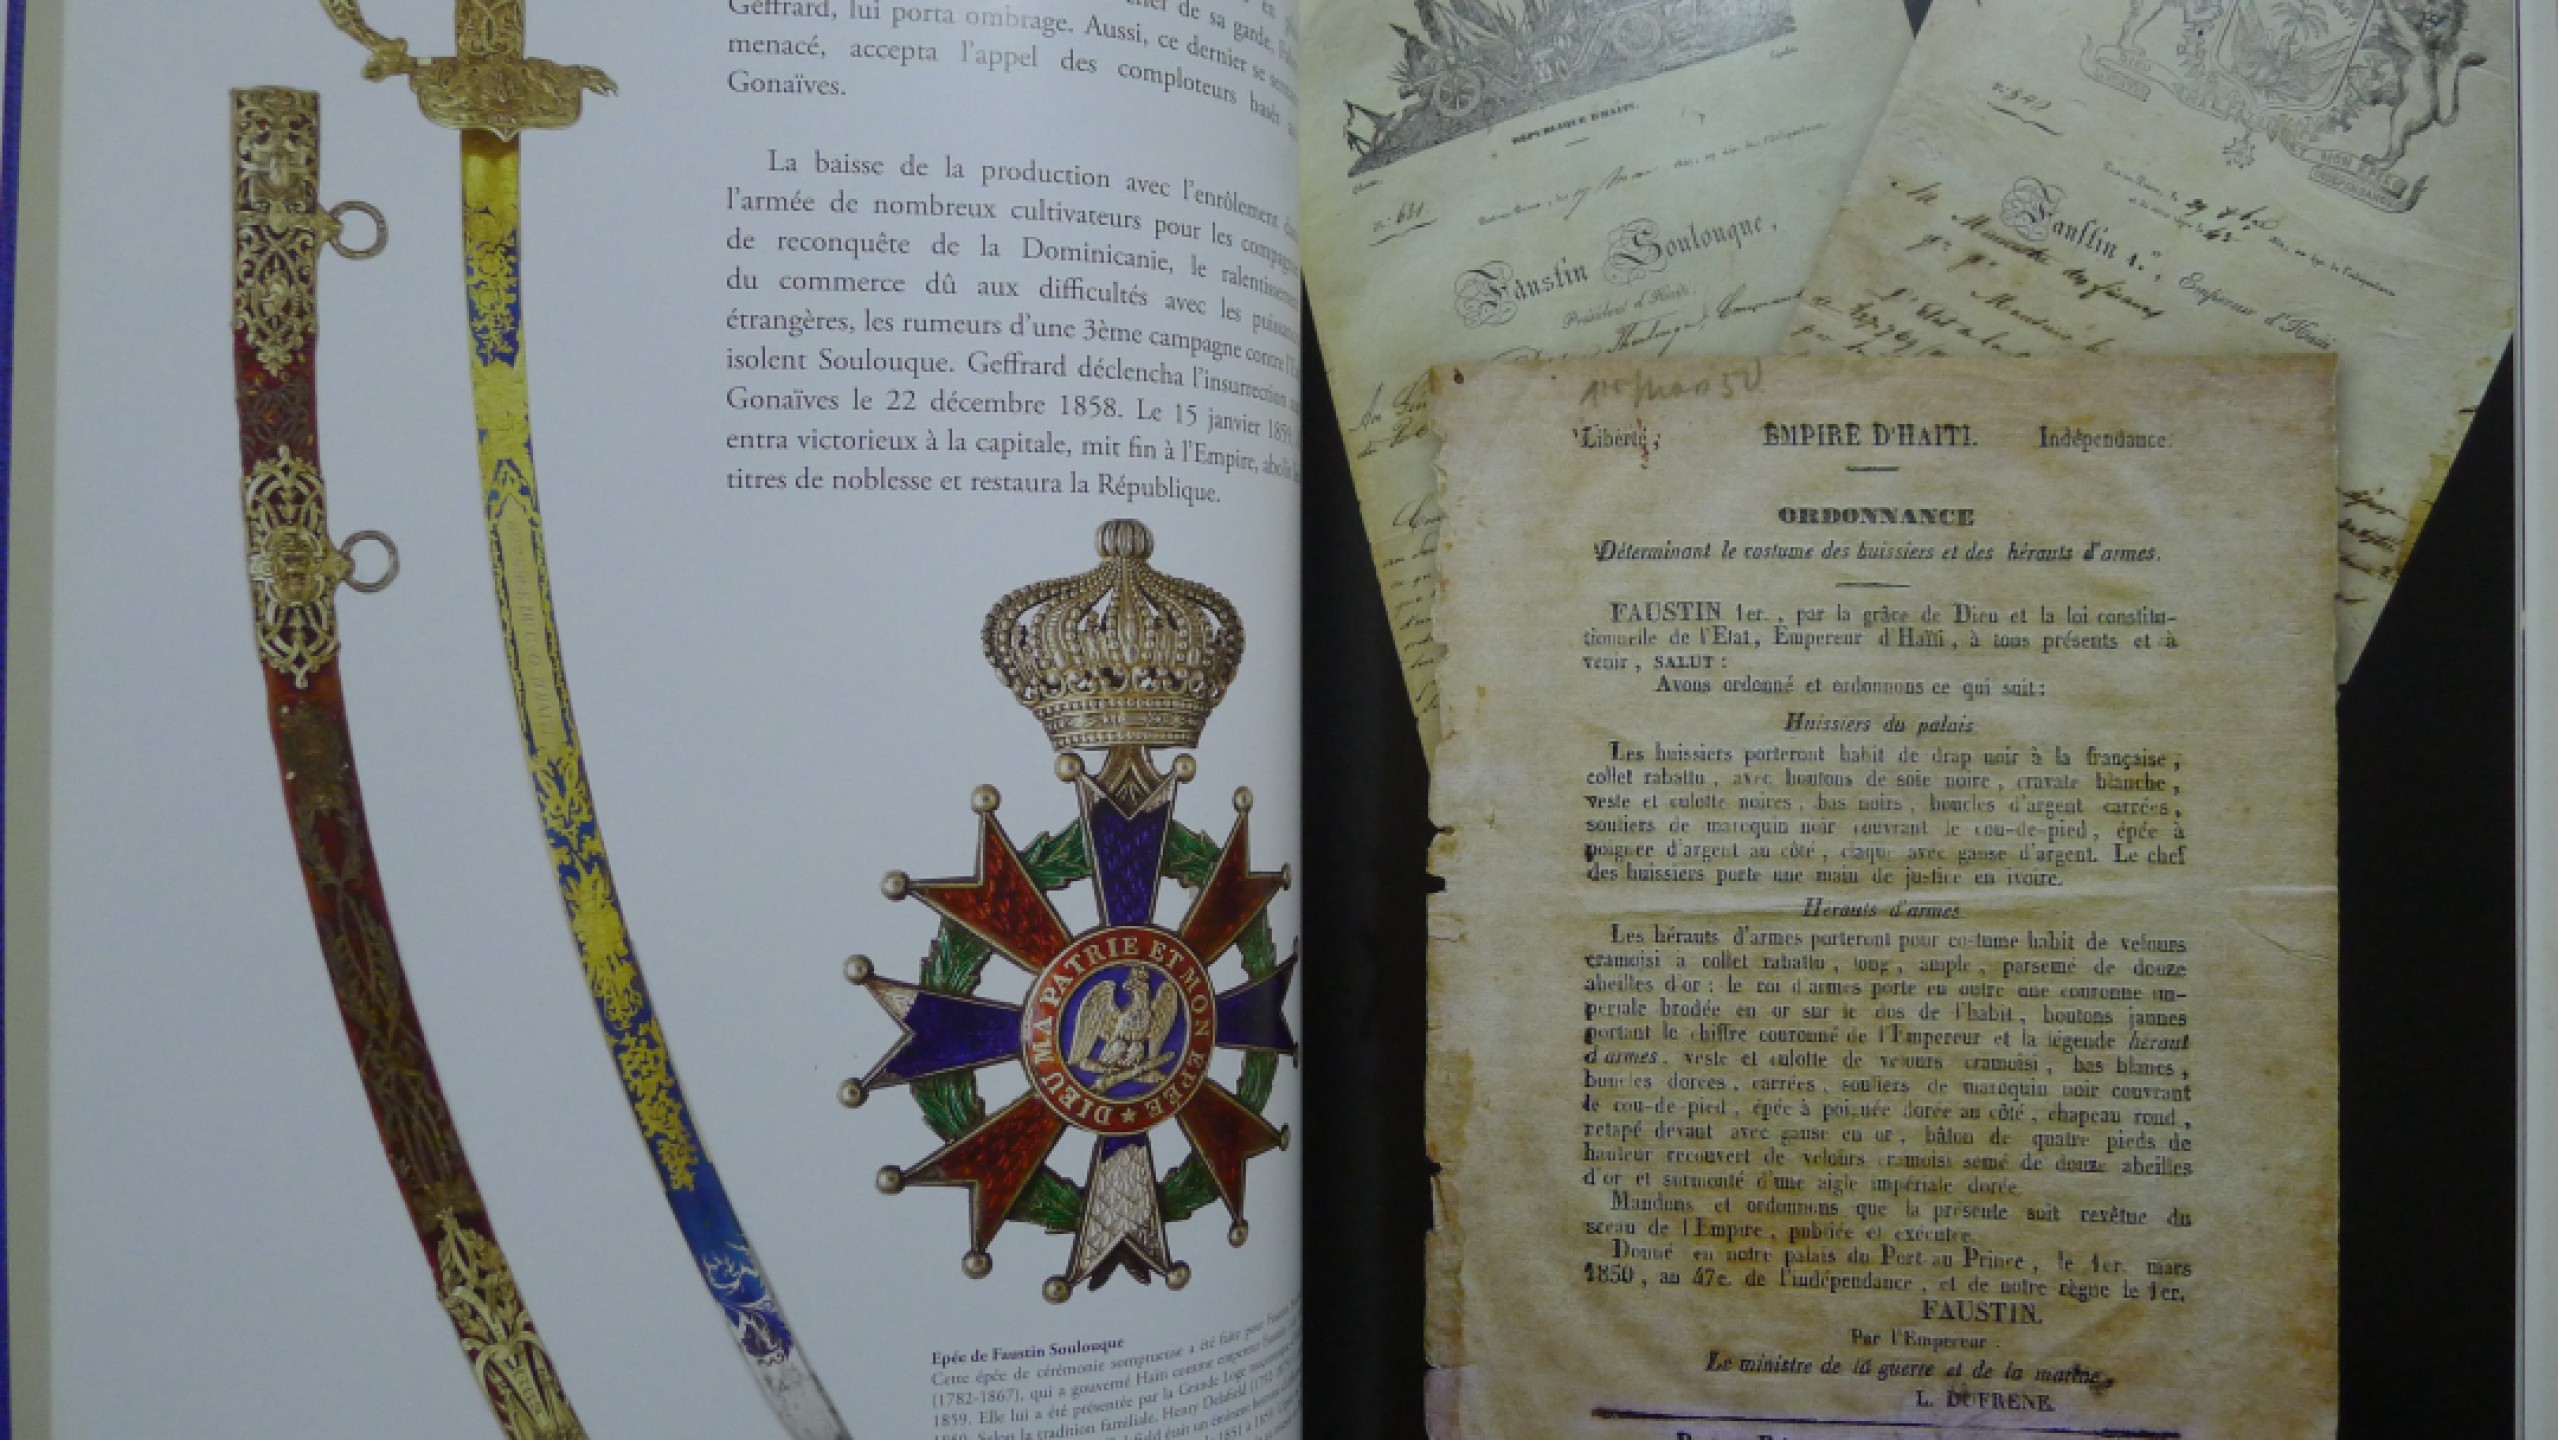 de sa garde,
Geffrard, lui porta ombrage. Aussi, ce dernier se
menacé, accepta l'appel des comploteurs basés
Gonaïves.
La baisse de la production avec l'enrôlement
l'armée de nombreux cultivateurs pour les
de reconquête de la Dominicanie, le
du commerce dû aux difficultés avec les
étrangères, les rumeurs d'une 3ème campagne contre
isolent Soulouque. Geffrard déclencha l'insurrection
Gonaïves le 22 décembre 1858. Le 15 janvier
entra victorieux à la capitale, mit fin à l'Empire,
titres de noblesse et restaura la République.
DIEU MA PATRIE ET MON EPEE ★
Epée de Faustin Soulouque
Cette épée de cérémonie somptueuse a été faite pour
(1782-1867), qui a gouverné Haïti comme empereur
1859. Elle lui a été présentée par la Grande Loge
Selon la tradition familiale, Henry Delafield
était un éminent
RÉPUBLIQUE D'HAÏTI.
Faustin Soulouque,
Président d'Haïti.
Faustin 1.er, Empereur d'Haïti
1er Mars 50
Liberté, EMPIRE D'HAITI. Indépendance.
ORDONNANCE
Déterminant le costume des huissiers et des hérauts d'armes.
FAUSTIN 1er., par la grâce de Dieu et la loi constitu-
tionnelle de l'Etat, Empereur d'Haïti, à tous présents et à
venir, SALUT :
Avons ordonné et ordonnons ce qui suit :
Huissiers du palais
Les huissiers porteront habit de drap noir à la française,
collet rabattu, avec boutons de soie noire, cravate blanche,
veste et culotte noires, bas noirs, boucles d'argent carrées,
souliers de maroquin noir couvrant le cou-de-pied, épée à
poignee d'argent au côté, claque avec ganse d'argent. Le chef
des huissiers porte une main de justice en ivoire.
Herauts d'armes
Les hérauts d'armes porteront pour costume habit de velours
cramoisi a collet rabattu, long, ample, parsemé de douze
abeilles d'or : le roi d'armes porte en outre une couronne im-
periale brodée en or sur le dos de l'habit, boutons jaunes
portant le chiffre couronné de l'Empereur et la légende héraut
d'armes, veste et culotte de velours cramoisi, bas blancs,
boucles dorées, carrées, souliers de maroquin noir couvrant
le cou-de-pied, épée à poignée dorée au côté, chapeau rond,
retapé devant avec ganse en or, bâton de quatre pieds de
hauteur recouvert de velours cramoisi semé de douze abeilles
d'or et surmonté d'une aigle impériale dorée.
Mandons et ordonnons que la présente soit revêtue du
sceau de l'Empire, publiée et exécutée.
Donné en notre palais du Port-au-Prince, le 1er. mars
1850, au 47e. de l'indépendance, et de notre règne le 1er.
FAUSTIN.
Par l'Empereur :
Le ministre de la guerre et de la marine,
L. DUFRENE.